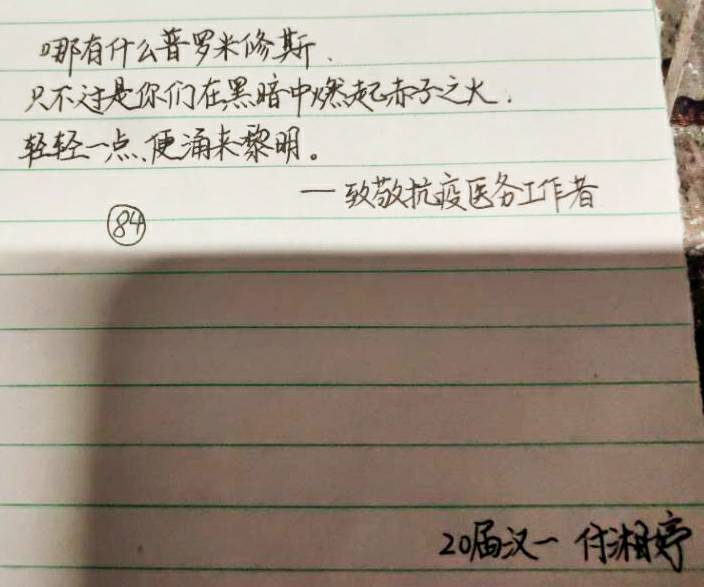 哪有什么普罗米修斯、
只不过是你们在黑暗中燃起赤子之火.
轻轻一点、便涌来黎明。
一致敬抗疫医务工作者
84
20届汉一 付湘婷